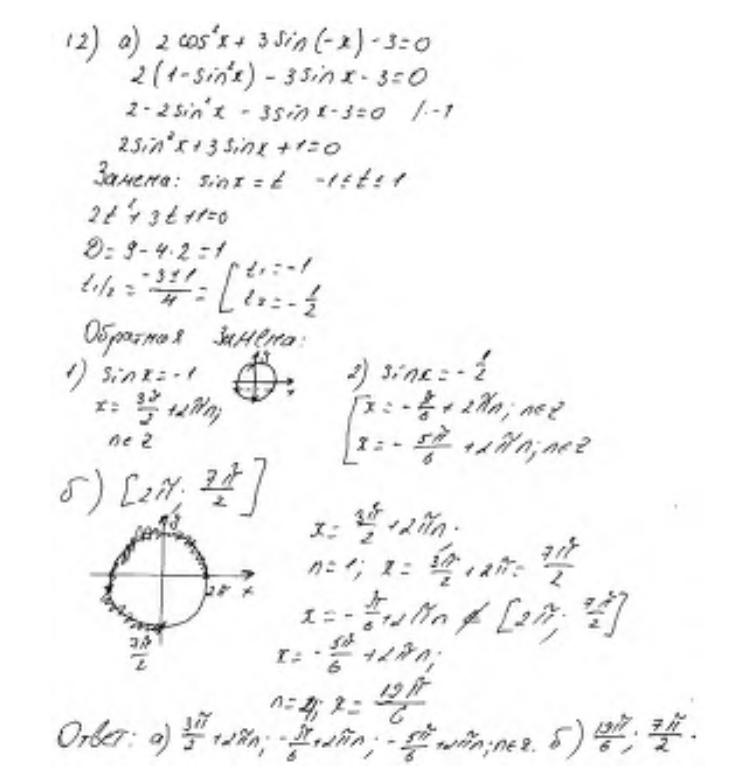 12) а) 2 cos²x + 3 sin(-x) - 3 = 0
2(1 - sin²x) - 3 sin x - 3 = 0
2 - 2 sin²x - 3 sin x - 3 = 0 | · -1
2 sin²x + 3 sin x + 1 = 0
Замена: sin x = t -1 ≤ t ≤ 1
2t² + 3t + 1 = 0
D = 9 - 4·2 = 1
t₁/₂ = (-3 ± 1)/4 = [ t₁ = -1
t₂ = -1/2
Обратная замена:
1) sin x = -1
x = 3π/2 + 2πn;
n ∈ Z
2) sin x = -1/2
[ x = -π/6 + 2πn; n ∈ Z
x = -5π/6 + 2πn; n ∈ Z
б) [2π; 7π/2]
y
2π x
7π/2
x = 3π/2 + 2πn.
n = 1; x = 3π/2 + 2π = 7π/2
x = -π/6 + 2πn ∉ [2π; 7π/2]
x = -5π/6 + 2πn;
n = 2; x = 19π/6
Ответ: а) 3π/2 + 2πn; -π/6 + 2πn; -5π/6 + 2πn; n ∈ Z. б) 19π/6; 7π/2.